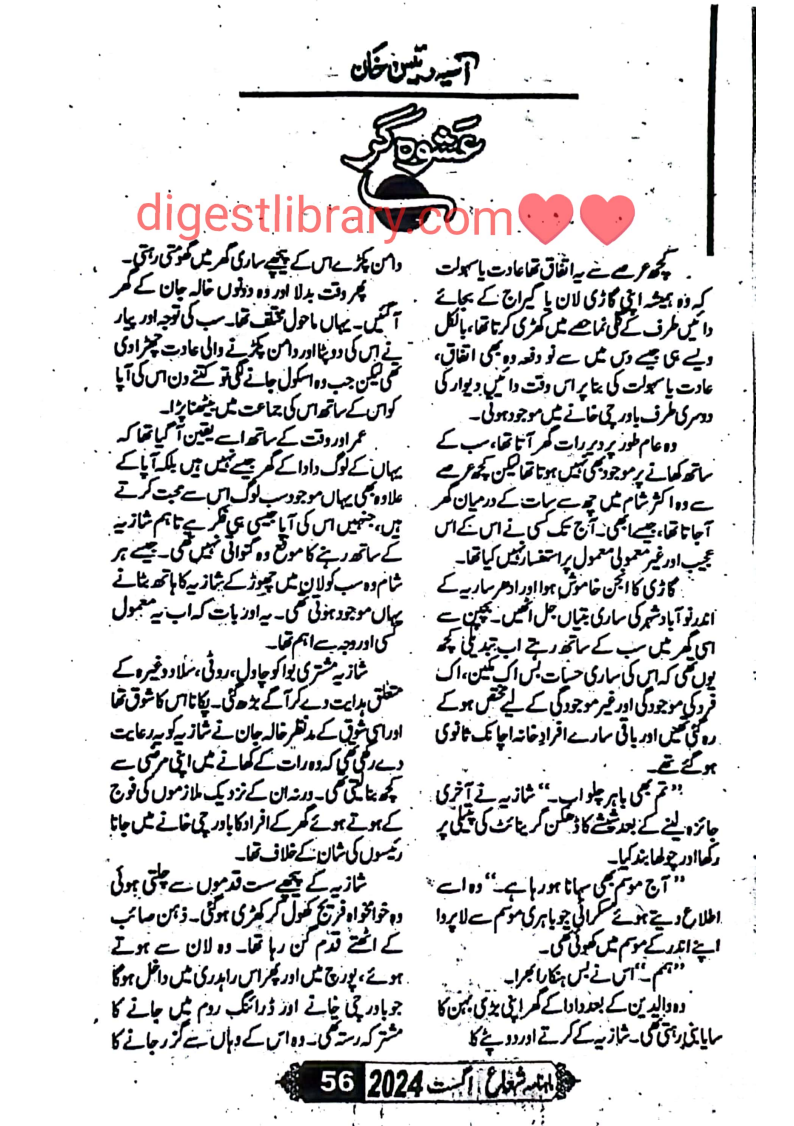 آسیہ رئیس خان
عشوہ گر
digestlibrary.com
کچھ عرصے سے یہ اتفاق تھا عادت یا سہولت
کہ وہ ہمیشہ اپنی گاڑی لان یا گیراج کے بجائے
دائیں طرف کے گلی نما حصے میں کھڑی کرتا تھا، بالکل
ویسے ہی جیسے دس میں سے نو دفعہ وہ بھی اتفاق،
عادت یا سہولت کی بنا پر اس وقت دائیں دیوار کی
دوسری طرف باورچی خانے میں موجود ہوتی۔
وہ عام طور پر دیر رات گھر آتا تھا، سب کے
ساتھ کھانے پر موجود بھی نہیں ہوتا تھا لیکن کچھ عرصے
سے وہ اکثر شام میں چھ سے سات کے درمیان گھر
آ جاتا تھا، جیسے ابھی۔ آج تک کسی نے اس کے اس
عجیب اور غیر معمولی معمول پر استفسار نہیں کیا تھا۔
گاڑی کا انجن خاموش ہوا اور ادھر ساریہ کے
اندر نو آباد شہر کی ساری بتیاں جل اٹھیں۔ بچپن سے
اسی گھر میں سب کے ساتھ رہتے اب تبدیلی کچھ
یوں تھی کہ اس کی ساری حسیات بس اک مکین، اک
فرد کی موجودگی اور غیر موجودگی کے لیے مختص ہو کے
رہ گئی تھیں اور باقی سارے افراد خانہ اچانک ثانوی
ہو گئے تھے۔
”تم بھی باہر چلو اب۔“ شازیہ نے آخری
جائزہ لینے کے بعد شیشے کا ڈھکن گرینائٹ کی پتیلی پر
رکھا اور چولھا بند کیا۔
”آج موسم بھی سہانا ہو رہا ہے۔“ وہ اسے
اطلاع دیتے ہوئے مسکرائی جو باہری موسم سے لا پروا
اپنے اندر کے موسم میں کھوئی تھی۔
”ہم۔“ اس نے بس ہنکارا بھرا۔
وہ والدین کے بعد دادا کے گھر اپنی بڑی بہن کا
سایا بنی رہتی تھی۔ شازیہ کے کرتے اور دوپٹے کا
دامن پکڑے اس کے پیچھے ساری گھر میں گھومتی رہتی۔
پھر وقت بدلا اور وہ دونوں خالہ جان کے گھر
آ گئیں۔ یہاں ماحول مختلف تھا۔ سب کی توجہ اور پیار
نے اس کی دوپٹا اور دامن پکڑنے والی عادت چھڑا دی
تھی لیکن جب وہ اسکول جانے لگی تو کتنے دن اس کی آپا
کو اس کے ساتھ اس کی جماعت میں بیٹھنا پڑا۔
عمر اور وقت کے ساتھ اسے یقین آ گیا تھا کہ
یہاں کے لوگ دادا کے گھر جیسے نہیں ہیں بلکہ آپا کے
علاوہ بھی یہاں موجود سب لوگ اس سے محبت کرتے
ہیں، جنہیں اس کی آپا جیسی ہی فکر ہے تاہم شازیہ
کے ساتھ رہنے کا موقع وہ گنواتی نہیں تھی۔ جیسے ہر
شام وہ سب کو لان میں چھوڑ کے شازیہ کا ہاتھ بٹانے
یہاں موجود ہوتی تھی۔ یہ اور بات کہ اب یہ معمول
کسی اور وجہ سے اہم تھا۔
شازیہ مشتری بوا کو چاول، روٹی، سلاد وغیرہ کے
متعلق ہدایت دے کر آگے بڑھ گئی۔ پکانا اس کا شوق تھا
اور اسی شوق کے مدنظر خالہ جان نے شازیہ کو یہ رعایت
دے رکھی تھی کہ وہ رات کے کھانے میں اپنی مرضی سے
کچھ بنا لیتی تھی۔ ورنہ ان کے نزدیک ملازموں کی فوج
کے ہوتے ہوئے گھر کے افراد کا باورچی خانے میں جانا
رئیسوں کی شان کے خلاف تھا۔
شازیہ کے پیچھے ست قدموں سے چلتی ہوئی
وہ خوامخواہ فریج کھول کر کھڑی ہو گئی۔ ذہن صائب
کے اٹھتے قدم گن رہا تھا۔ وہ لان سے ہوتے
ہوئے، پورچ میں اور پھر اس راہدری میں داخل ہوگا
جو باورچی خانے اور ڈرائنگ روم میں جانے کا
مشترکہ رستہ تھی۔ وہ اس کے وہاں سے گزر جانے کا
ماہنامہ شعاع اگست 2024 56